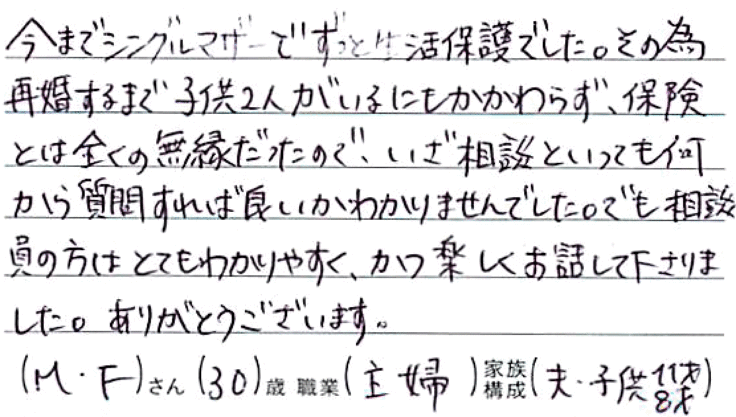 今までシングルマザーでずっと生活保護でした。その為
再婚するまで子供2人がいるにもかかわらず、保険
とは全くの無縁だったので、いざ相談といっても何
から質問すれば良いかわかりませんでした。でも相談
員の方はとてもわかりやすく、かつ楽しくお話して下さりま
した。ありがとうございます。
(M・F)さん(30)歳 職業(主婦)家族構成(夫・子供11才8才)